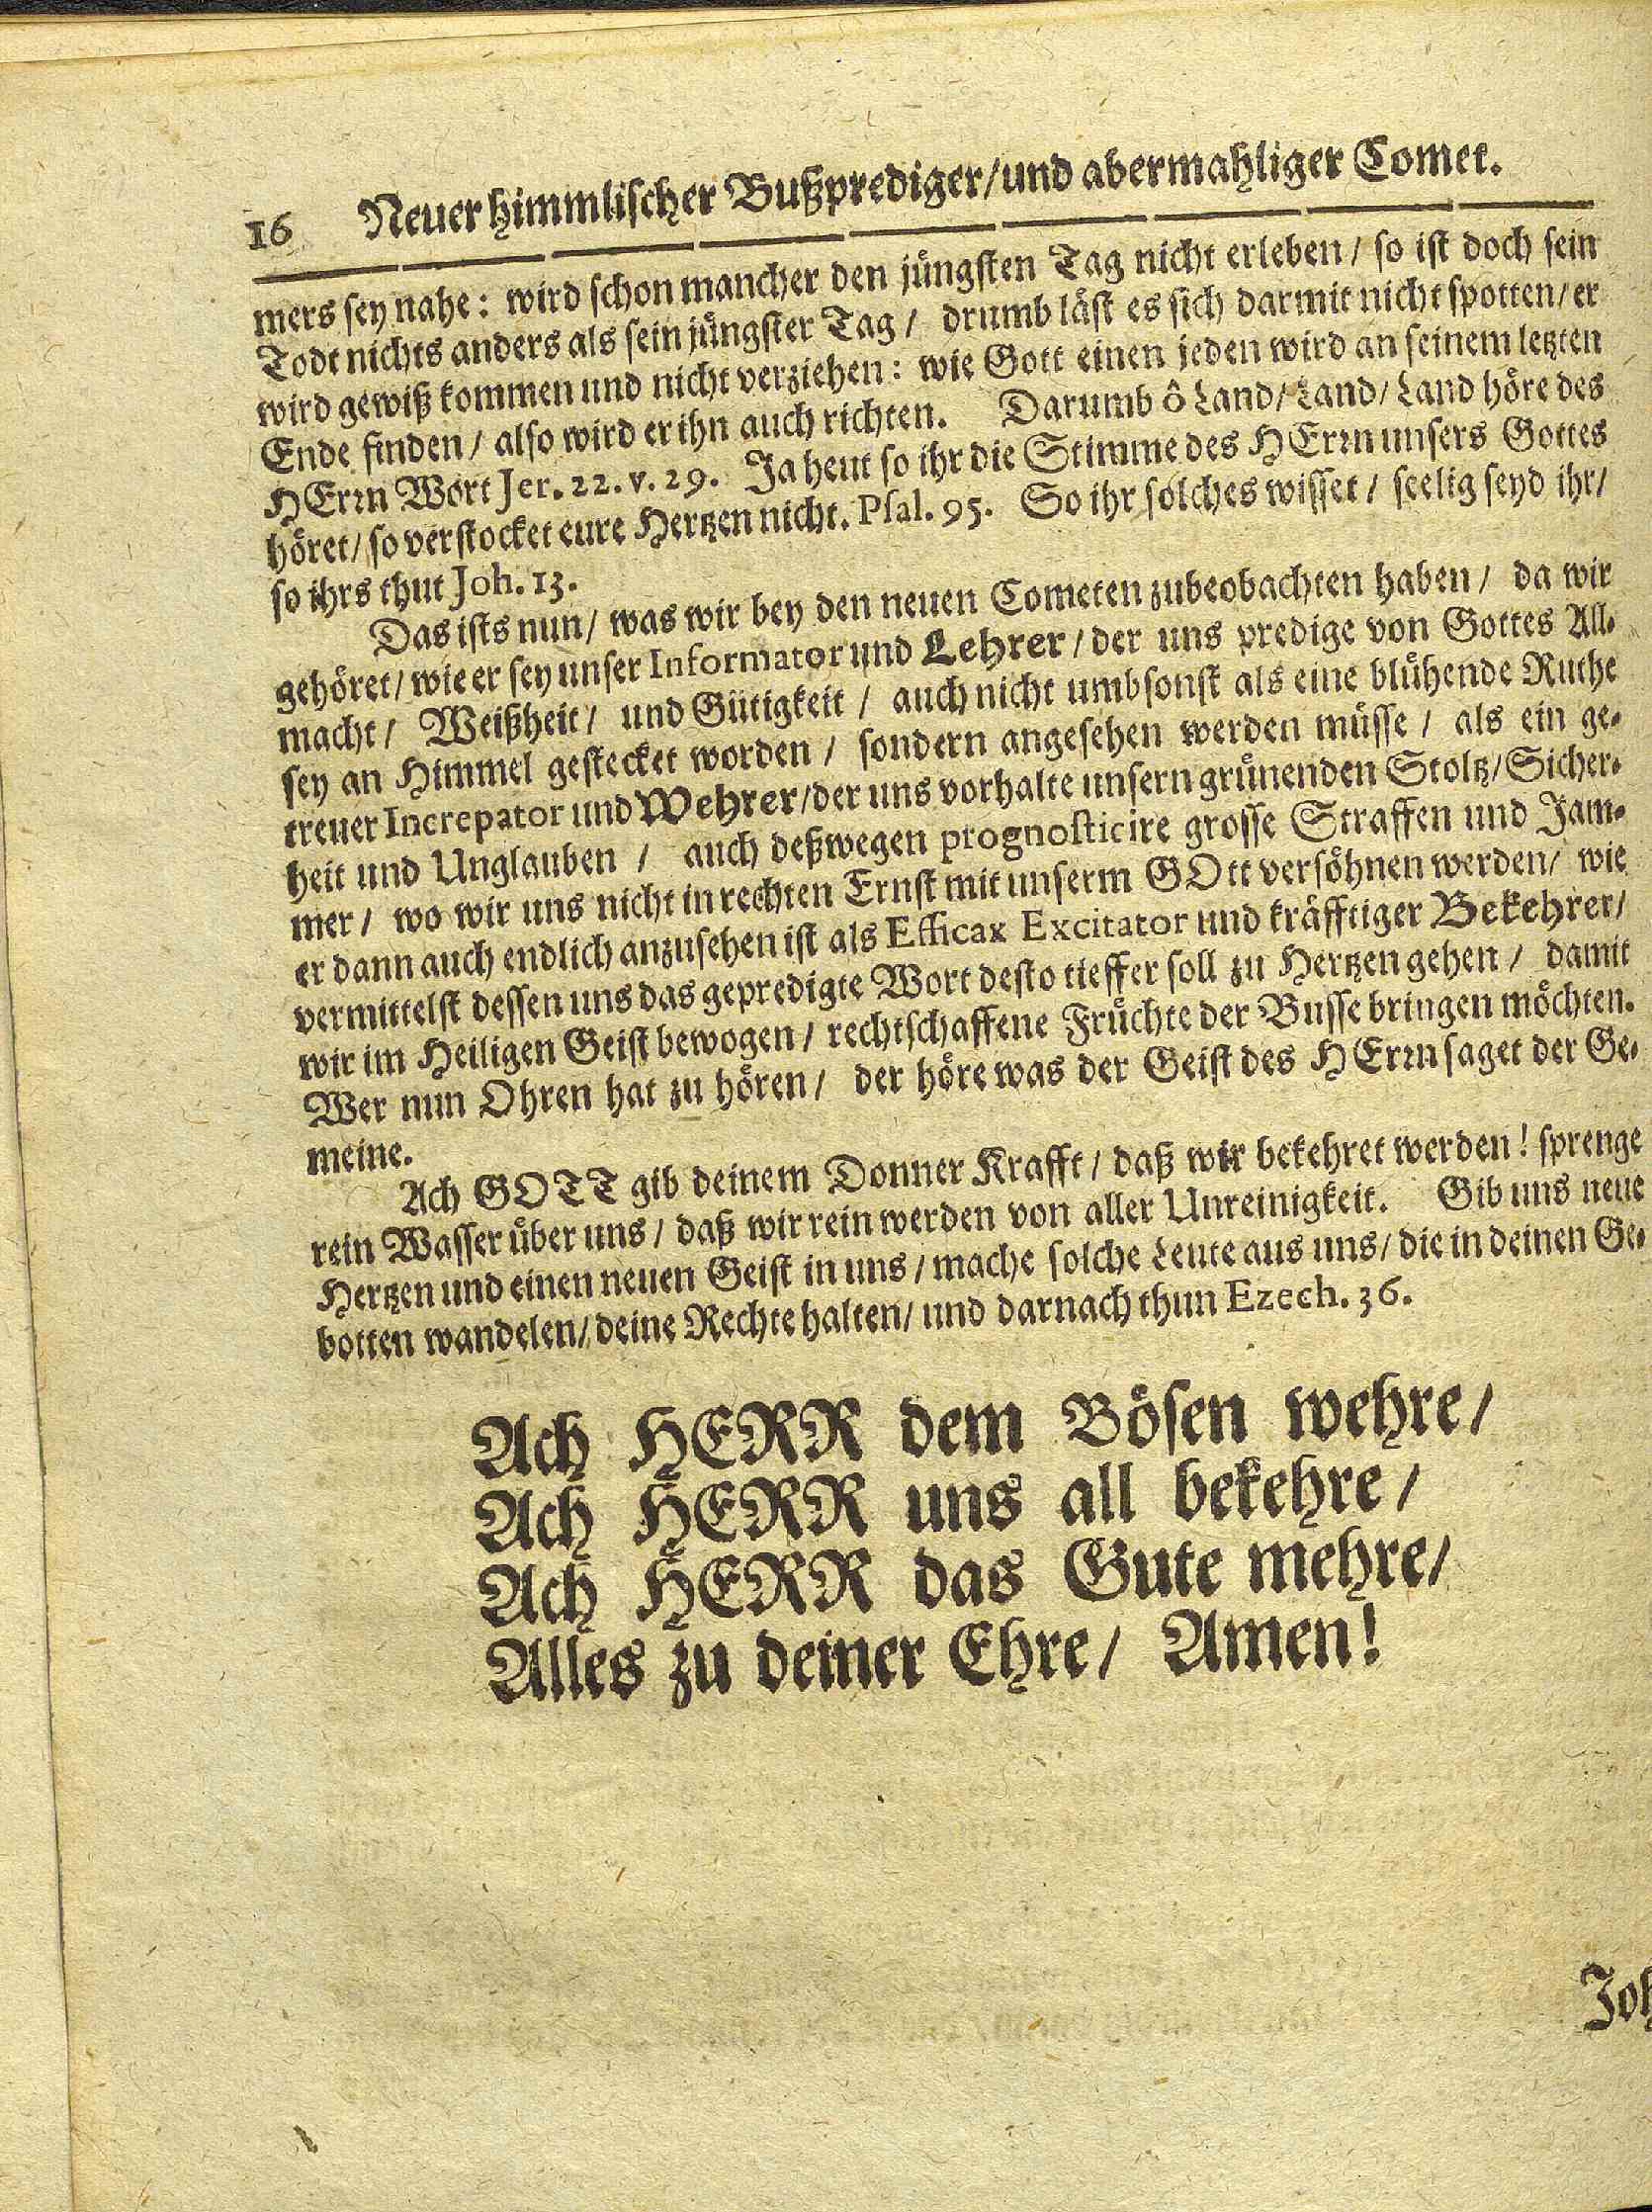 16 Neuer himmlischer Bußprediger/und abermahliger Comet.
mers sey nahe: wird schon mancher den jüngsten Tag nicht erleben / so ist doch sein
Todt nichts anders als sein jüngster Tag / drumb läst es sich darmit nicht spotten/ er
wird gewiß kommen und nicht verziehen: wie Gott einen jeden wird an seinem letzten
Ende finden / also wird er ihn auch richten. Darumb ô Land/ Land/ Land höre des
HErrn Wort Jer. 22. v. 29. Ja heut so ihr die Stimme des HErrn unsers Gottes
höret/ so verstocket eure Hertzen nicht. Psal. 95. So ihr solches wisset / seelig seyd ihr/
so ihrs thut Joh. 13.
Das ists nun/ was wir bey den neuen Cometen zubeobachten haben / da wir
gehöret/ wie er sey unser Informator und Lehrer / der uns predige von Gottes All-
macht / Weißheit / und Gütigkeit / auch nicht umbsonst als eine blühende Ruthe
sey an Himmel gestecket worden / sondern angesehen werden müsse / als ein ge-
treuer Increpator und Wehrer/der uns vorhalte unsern grünenden Stoltz/ Sicher-
heit und Unglauben / auch deßwegen prognosticire grosse Straffen und Jam-
mer / wo wir uns nicht in rechten Ernst mit unserm GOtt versöhnen werden/ wie
er dann auch endlich anzusehen ist als Efficax Excitator und kräfftiger Bekehrer/
vermittelst dessen uns das gepredigte Wort desto tieffer soll zu Hertzen gehen / damit
wir im Heiligen Geist bewogen / rechtschaffene Früchte der Busse bringen möchten.
Wer nun Ohren hat zu hören / der höre was der Geist des HErrn saget der Ge-
meine.
Ach GOTT gib deinem Donner Krafft / daß wir bekehret werden! sprenge
rein Wasser über uns / daß wir rein werden von aller Unreinigkeit. Gib uns neue
Hertzen und einen neuen Geist in uns / mache solche Leute aus uns/ die in deinen Ge-
botten wandelen/ deine Rechte halten/ und darnach thun Ezech. 36.
Ach HERR dem Bösen wehre/
Ach HERR uns all bekehre /
Ach HERR das Gute mehre/
Alles zu deiner Ehre / Amen!
Joh